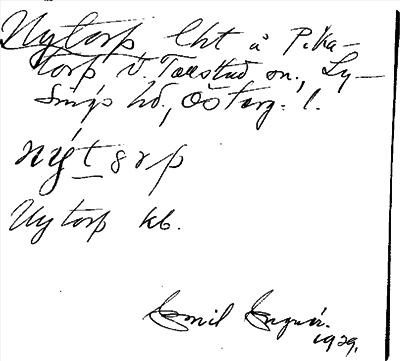 Nytorp lht å P. Ka-
torp V. Tollstad sn., Ly-
sings hd., Österg. l.
nýtərp
Nytorp kb.
Emil
1929.